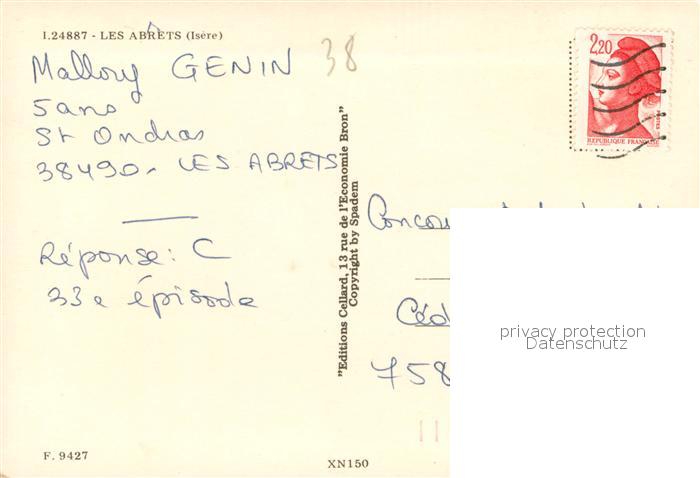 I.24887 - LES ABRETS (Isère)
Mallory GENIN
5 ans
St Ondras
38490 - LES ABRETS
Réponse: C
33e épisode
F. 9427
38
"Editions Cellard, 13 rue de l'Economie Bron"
Copyright by Spadem
XN150
2,20
POSTES
REPUBLIQUE FRANÇAISE
Concou
Céd
758
privacy protection
Datenschutz